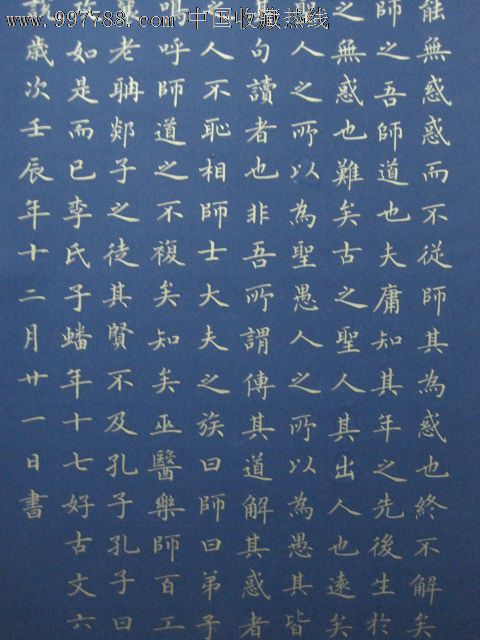 www.997788.com 中国收藏热线
能無惑惑而不從師其為惑也終不解矣
師之吾師道也夫庸知其年之先後生於
之無惑也難矣古之聖人其出人也遠矣
聖人之所以為聖愚人之所以為愚其皆
句讀者也非吾所謂傳其道解其惑者
人不恥相師士大夫之族曰師曰弟子
嗚呼師道之不複矣知矣巫醫樂師百工
老聃郯子之徒其賢不及孔子孔子曰
如是而已李氏子蟠年十七好古文六
歲次壬辰年十二月廿一日書